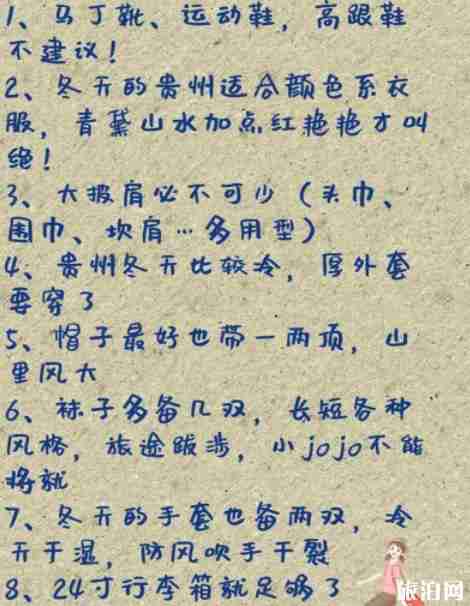 1、马丁靴、运动鞋，高跟鞋
不建议！
2、冬天的贵州适合颜色系衣
服，青黛山水加点红艳艳才叫
绝！
3、大披肩必不可少（头巾、
围巾、坎肩…多用型）
4、贵州冬天比较冷，厚外套
要穿了
5、帽子最好也带一两顶，山
里风大
6、袜子多备几双，长短各种
风格，旅途跋涉，小jojo不能
将就
7、冬天的手套也备两双，冷
天干湿，防风吹手干裂
8、24寸行李箱就足够了
旅泊网